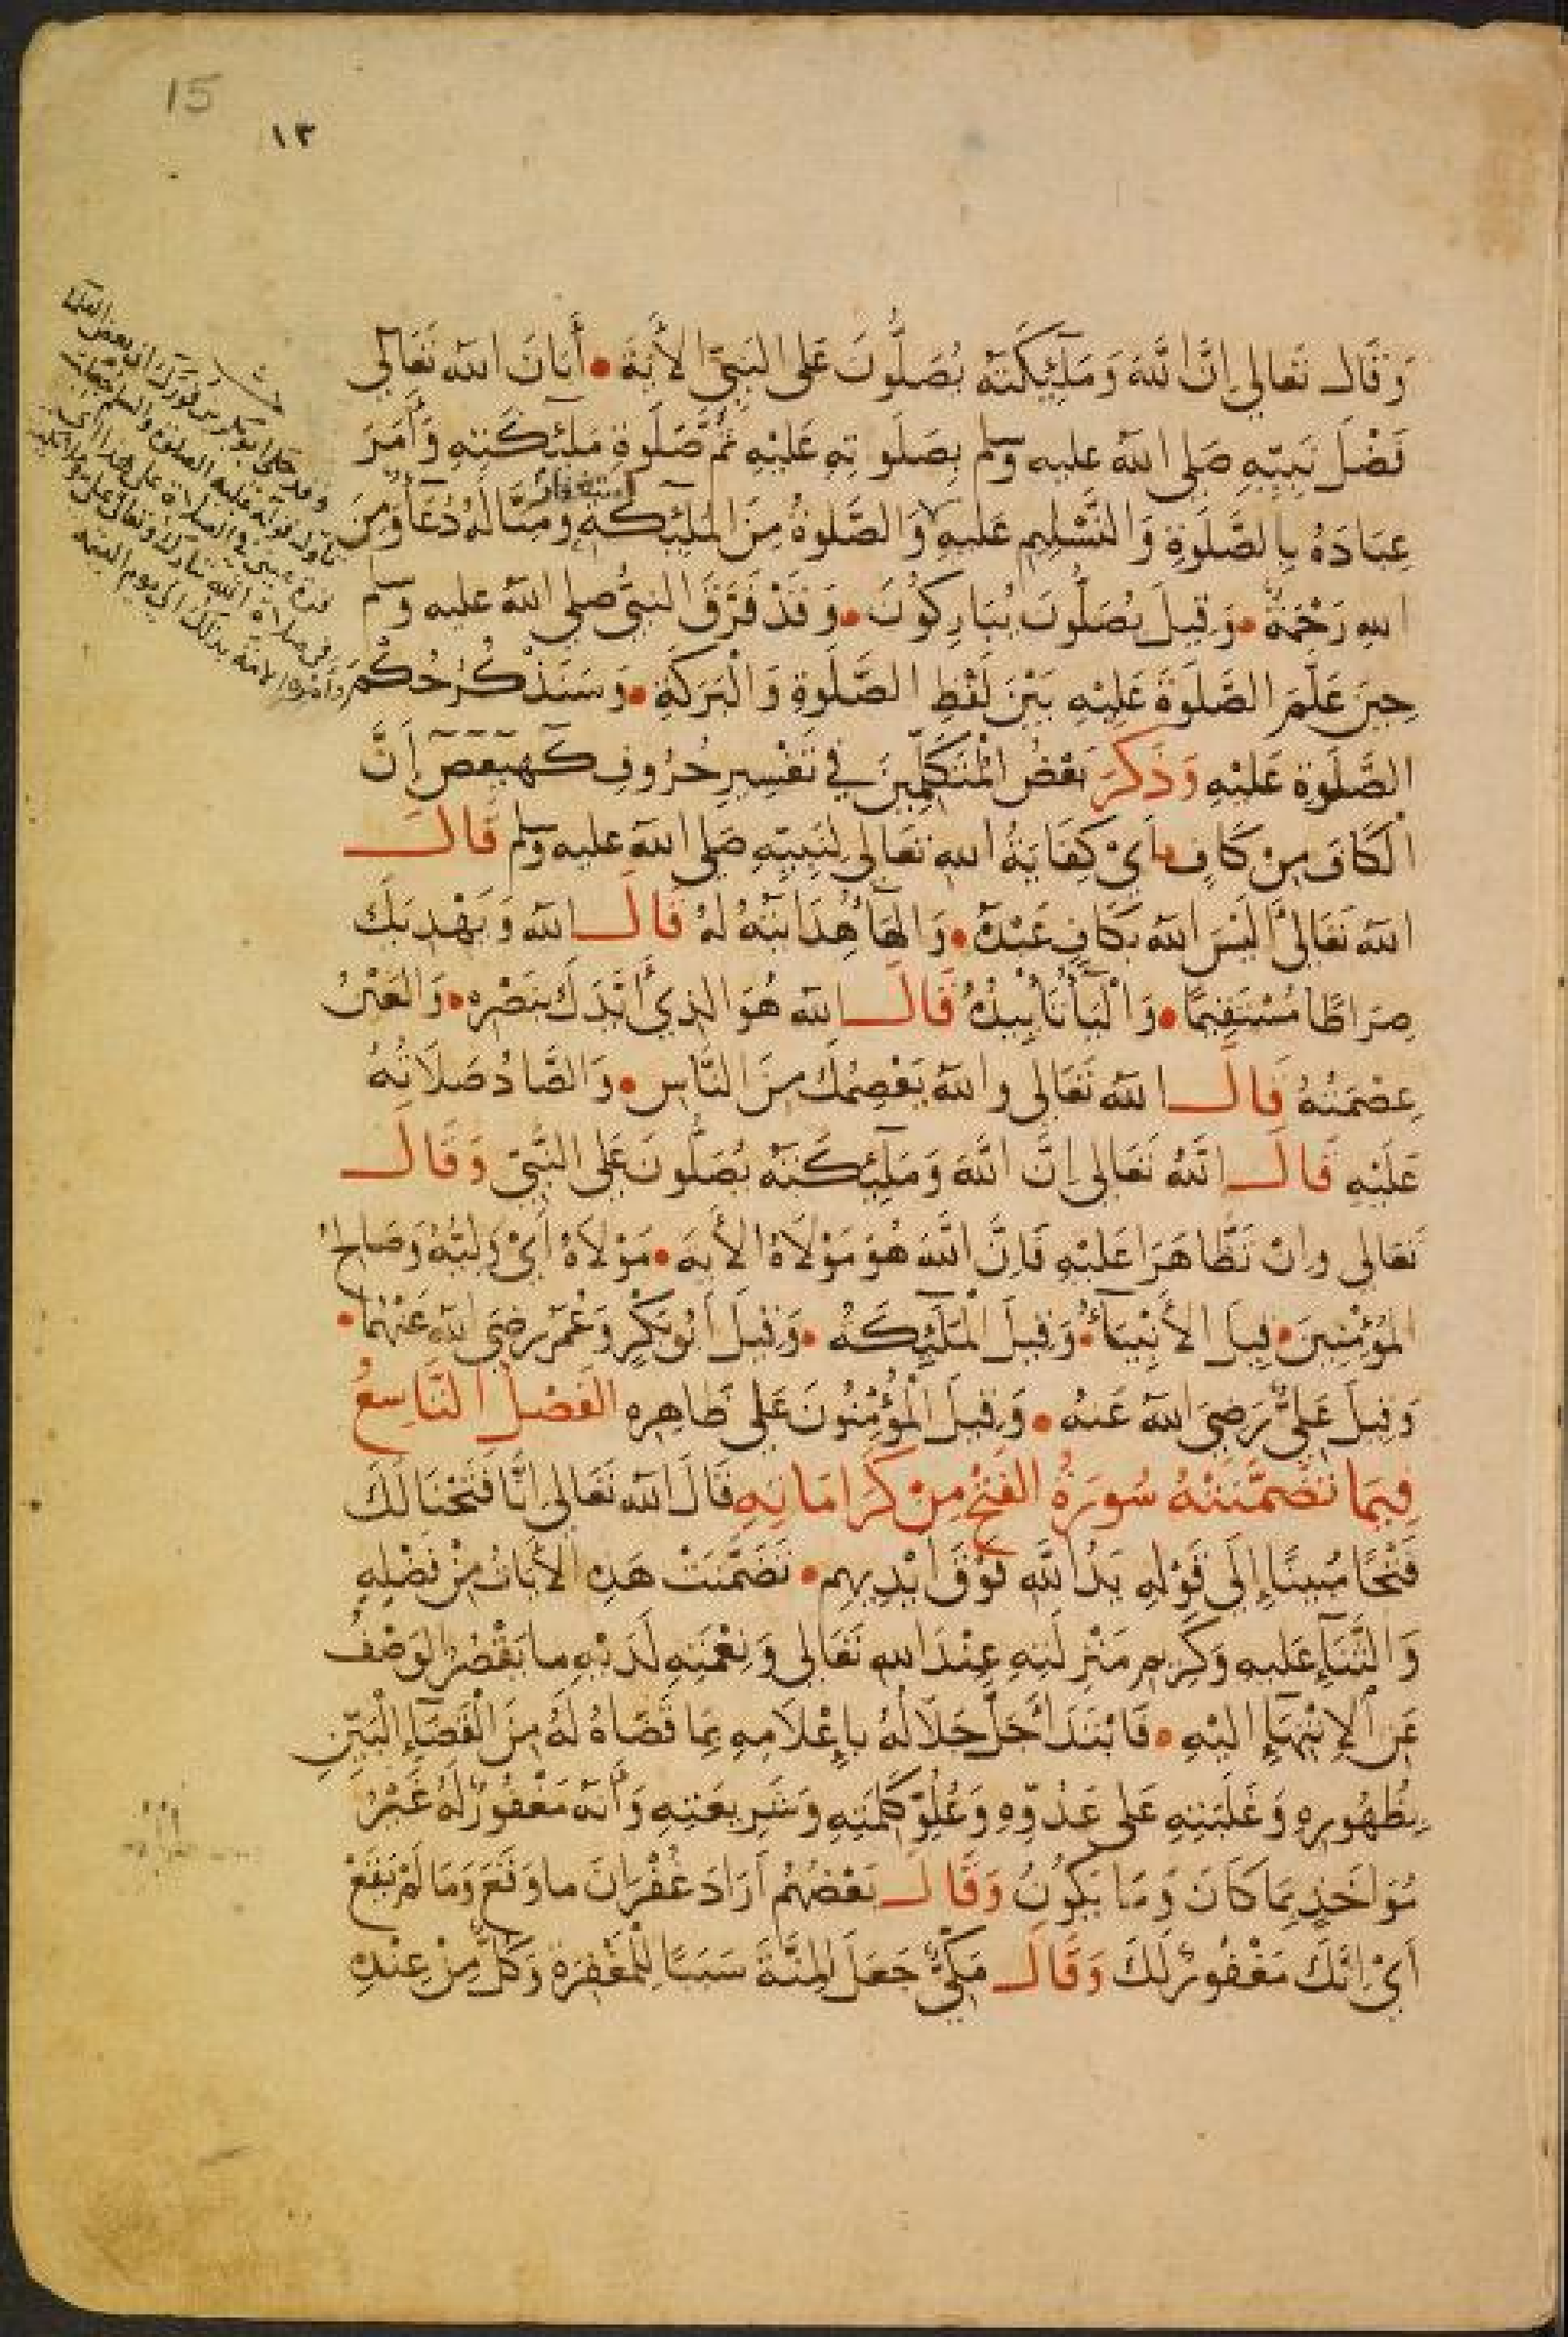 15
١٣
وَقَالَ تَعَالى اِنَّ اللَّهَ وَمَلَٓئِكَتَهُ يُصَلُّونَ عَلَى النَّبِيِّ الأيَةَ • أَبَانَ اللهُ تَعَالَى
فَضْلَ نَبِيِّهِ صَلى اللهُ عليه وسلم بِصَلَوتِهِ عَلَيْهِ ثُمَّ صَلَوةِ مَلَٓئِكَتِهِ وَأَمَرَ
عِبَادَهُ بِالصَّلَوةِ وَالتَّسْلِيمِ عَليهِ وَالصَّلَوةُ مِنَ المَلَٓئِكَةِ استغفار وَمِنَّا لَهُ دُعَاءٌ وَمِنَ
اللهِ رَحْمَةٌ • وَقِيلَ يُصَلُّونَ يُبَارِكُونَ • وَقَدْ فَرَّقَ النبيُّ صلى اللهُ عليه وسلم
حِينَ عَلَّمَ الصَّلَوةَ عَلَيْهِ بَيْنَ لَفْظِ الصَّلَوةِ وَالْبَرَكَةِ • وَسَنَذْكُرُ حُكْمَ
الصَّلَوةِ عَلَيْهِ وَذَكَرَ بَعْضُ المُتَكَلِّمِينَ في تَفْسِيرِ حُرُوفِ كٓهٓيٓعٓصٓ أَنَّ
الْكَافَ مِنْ كَافٍ أيْ كِفَايَةُ اللهِ تعَالى لِنَبِيِّهِ صَلى اللهُ عليه وسلم قَالَ
اللهُ تَعَالىٰ أَلَيْسَ اللهُ بِكَافٍ عَبْدَهُ • وَالهَآءُ هِدَايَتُهُ لَهُ قَالَ اللهُ وَيَهْدِيَكَ
صِرَاطًا مُسْتَقِيمًا • وَالْيَآءُ تَأْيِيدُهُ قَالَ اللهُ هُوَ الذِي أَيَّدَكَ بِنَصْرِهِ • وَالعَيْنُ
عِصْمَتُهُ قَالَ اللهُ تَعَالى واللهُ يَعْصِمُكَ مِنَ النَّاسِ • وَالصَّادُ صَلَاتُهُ
عَلَيْهِ قَالَ اللهُ تَعَالى اِنَّ اللَّهَ وَمَلَٓئِكَتَهُ يُصَلُّونَ عَلَى النَّبِيِّ وَقَالَ
تَعَالى وَانْ تَظَّاهَرَا عَلَيْهِ فَاِنَّ اللَّهَ هُوَ مَوْلَاهُ الأيَة • مَوْلَاهُ أيْ وَلِيُّهُ وَصَالحُ
المُؤْمِنِينَ • قِيلَ الأَنْبِيَآءُ • وَقِيلَ المَلَٓئِكَةُ • وَقِيلَ أَبُو بَكْرٍ وَعُمَرُ رضِيَ اللهُ عَنْهُمَا •
وَقِيلَ عَلِيٌّ رَضِيَ اللهُ عَنهُ • وَقِيلَ الْمُؤْمِنُونَ عَلى ظَاهِرِهِ الفَصْلُ التَّاسِعُ
فِيمَا تَضَمَّنَتْهُ سُورَةُ الفَتْحِ مِنْ كَرَامَاتِهِ قَالَ اللهُ تَعَالى اِنَّا فَتَحْنَا لَكَ
فَتْحًا مُبِينًا إِلَى قَوْلِهِ يَدُ اللهِ فَوْقَ أَيْدِيهِم • تَضَمَّنَتْ هَذِهِ الأَيَاتُ مِنْ فَضْلِهِ
وَالثَّنَآءِ عَليهِ وَكَرِيمِ مَنْزِلَتِهِ عِنْدَ اللهِ تَعَالى وَنِعْمَتِهِ لَدَيْهِ ما يَقْصُرُ الوَصْفُ
عَنِ الإِنْتِهَآءِ اليْهِ • فَابْتَدَأَ جَلَّ جَلَالُهُ بِإِعْلَامِهِ بِمَا قَضَاهُ لَهُ مِنَ الْقَضَآءِ الْبَيِّنِ
بِظُهُورِهِ وَغَلَبَتِهِ عَلى عَدُوِّهِ وَعُلُوِّ كَلِمَتِهِ وَشَرِيعَتِهِ وَأَنّهُ مَغْفُورٌ لَهُ غَيْرُ
مُؤَاخَذٍ بِمَا كَانَ وَمَا يَكُونُ وَقَالَ بَعْضُهُمْ أَرَادَ غُفْرَانَ ما وَقَعَ وَمَا لَمْ يَقَعْ
أَيْ اِنَّكَ مَغْفُورٌ لَكَ وَقَالَ مَكِّيٌّ جَعَلَ المِنَّةَ سَبَبًا لِلْمَغْفِرَةِ وَكُلٌّ مِنْ عِنْدِهِ
وقد حكى أبو بكر بن فورك ان بعض العلماء
تأول قوله عليه الصلوة والسلام وجعلت
قرة عيني في الصلاة على هذا اي
في صلاة الله تبارك وتعالى علي وملائكته
وأمره الامة بذلك الى يوم القيمة